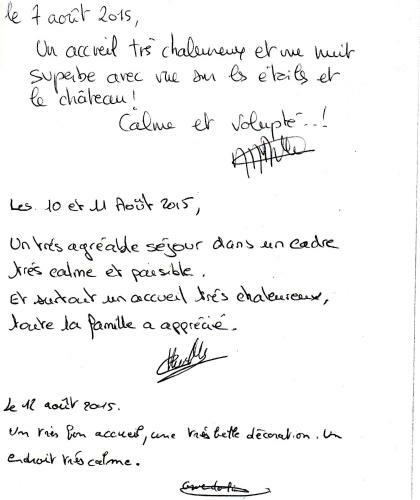 le 7 août 2015,
Un accueil très chaleureux et une nuit
superbe avec vue sur les étoiles et
le château !
Calme et volupté..!
Les 10 et 11 Août 2015,
Un très agréable séjour dans un cadre
très calme et paisible.
Et surtout un accueil très chaleureux,
toute la famille a apprécié.
Le 12 août 2015.
Un très bon accueil, une très belle décoration. Un
endroit très calme.